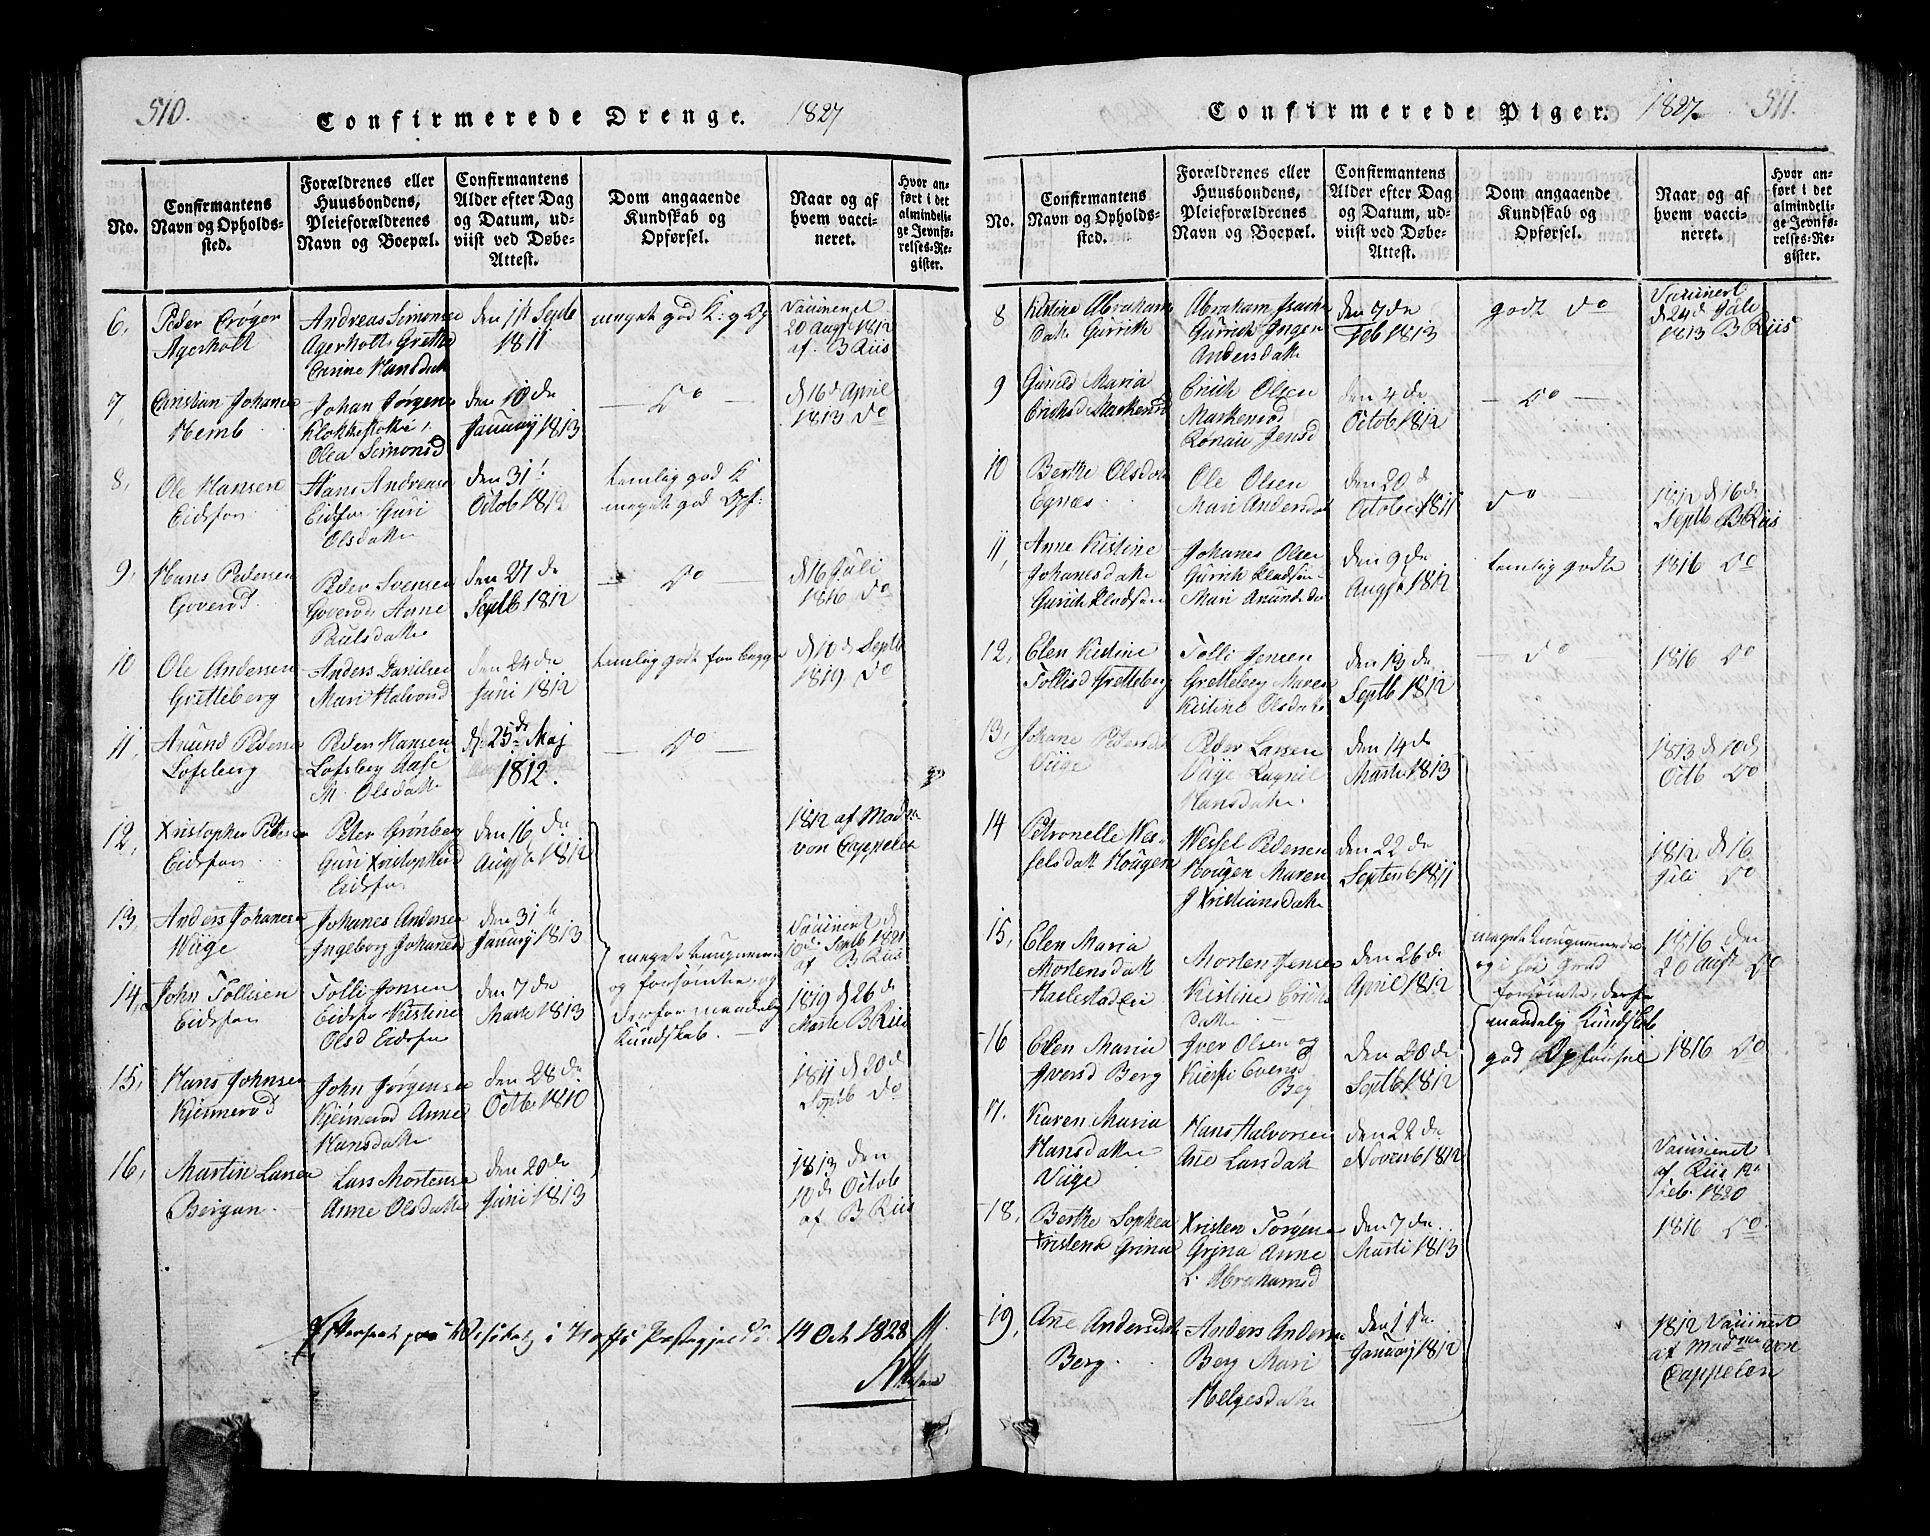 510.
Confirmerede Drenge. 1827
No.
Confirmantens
Navn og Opholds-
sted.
Forældrenes eller
Huusbondens,
Pleieforældrenes
Navn og Boepæl.
Confirmantens
Alder efter Dag
og Datum, ud-
viist ved Døbe-
Attest.
Dom angaaende
Kundskab og
Opførsel.
Naar og af
hvem vacci-
neret.
Hvor an-
ført i det
almindeli-
ge Jevnfø-
relses-Re-
gister.
6,
Peder
Agerholt
Andreas Simonsen
Agerholt Grethe
Hansdatt
den 1ste Septb
1811
meget god K: og Of
Vaccineret
20 Augst 1812
af B Riis
7,
Christian Johansen
Hemb
Johan Jørgensen
Klokkeholte,
Olea Simonsd
den 10 de
Januarij 1813
— Do —
d 16 d April
1813 Do
8,
Ole Hansen
Eidsfos
Hans Andreasen
Eidsfos Guri
Olsdatter
den 31 t
Octob 1812
temlig god K
meget god Opf:
9,
Hans Pedersen
Goverød
Peder Svensen
Goverød Anne
Poulsdatter
den 27 de
Septb 1812
— Do —
d 16 Juli
1816 Do
10
Ole Andersen
Gretteberg
Anders Davidsen
Mari Halvorsd
den 24 de
Juni 1812
temlig godt for begge
d 10 d Septb
1819 Do
11,
Amund Pedersen
Lofsberg
Peder Hansen
Lofsberg Aase
M. Olsdatter
d. 25 de Maj
1812.
— Do —
12,
Xristopher Pedersen
Eidsfos
Peter Grønberg
Guri Xristophersd
Eidsfos
den 16 de
Augst 1812
1812 af Madme
von Cappelen
13,
Anders Johanesen
Wiige
Johanes Andersen
Ingeborg Johanesd
den 31 te
Januarij 1813
Vaccineret d
10de Septb 1821
af B Riis
meget tungnemme
og forsømte, og
derfor maadelig
Kundskab.
14,
John Tollisen
Eidsfos
Tolli Jonsen
Eidsfos Kistine
Olsd Eidsfos
den 7 de
Marts 1813
1819 d 26 de
Marts B Riis
15,
Hans Johnsen
Kjennerød
John Jørgensen
Kjennerød Anne
Hansdatter
den 28 de
Octbr 1810
1811 d 20 d
Septb Do
16,
Martin Larsen
Bergan
Lars Mortensen
Anne Olsdatter
den 20 de
Juni 1813
1813 den
10 de Octob
af B Riis
Efterseet paa Visitatz i Hoffs Præstegjeld d. 14 Oct 1828
Confirmerede Piger. 1827. 511.
No.
Confirmantens
Navn og Opholds-
sted.
Forældrenes eller
Huusbondens,
Pleieforældrenes
Navn og Boepæl.
Confirmantens
Alder efter Dag
og Datum, ud-
viist ved Døbe-
Attest.
Dom angaaende
Kundskab og
Opførsel.
Naar og af
hvem vacci-
neret.
Hvor an-
ført i det
almindeli-
ge Jevnfø-
relses-Re-
gister.
8
Kistine Abrahams
datt Gurrik
Abraham Isachsen
Gurrik Inger
Andersdatter
den 7 de
Feb 1813
godt Do
Vaccinert
d 24 d Juli
1813 B Riis
9
Gunild Maria
Erichsd Markerød
Erich Olsen
Markerød
Jensd
den 4 de
Octob 1812
— Do —
10
Berthe Olsdatt
Egnæs
Ole Olsen
Mari Andersdatt
den 20 d
October 1811
Do
1812 d 16 de
Septb B Riis
11,
Anne Kistine
Johanesdatter
Gurich Pladsen
Johanes Olsen
Gurich Pladsen
Mari
den 9 de
Augst 1812
temlig godt
1816 Do
12,
Elen Kistine
Tollisd Gretteberg
Tolli Jensen
Gretteberg Maren
Kistine Olsdatter
den 13 de
Septb 1812
— Do —
1816 Do
13,
Johane Pedersdatt
Viige
Peder Larsen
Viige Ragnil
Hansdatter.
den 14 de
Marts 1813
1813 d 10 d
Octb Do
14
Petronelle Wes-
selsdatt Hougen
Wessel Pedersen
Hougen Maren
J Xristiansdatter
den 22 de
Septemb 1811
1812 d 16
Juli Do
15,
Elen Maria
Mortensdatt
Haslestad Eie
Morten Jensen
Kistine Erichs
datter
den 26 de
April 1812
meget tungnemme
og i høi Grad
forsømte, derfor
maadelig Kundskab
god Opførsel
1816 den
20 Augst Do
16
Elen Maria
Iversd Berg
Iver Olsen og
Kiersti Evensd
Berg
den 20 de
Septb 1812
1816 Do
17.
Karen Maria
Hansdatter
Viige
Hans Halvorsen
Ane Larsdatt
den 22 de
Novemb 1812
Vaccineret
af Riis 12te
Feb. 1820
18,
Berthe Sophea
Xristensd Grina
Xristen Jørgensen
Grina Anne
L. Abrahamsd
den 7 de
Marts 1813
1816 Do
19,
Ane Andersdatt
Berg
Anders Andersen
Berg Mari
Helgesdatter
den 1 de
Januarij 1812
1812 Vaccineret
af Madme von
Cappelen